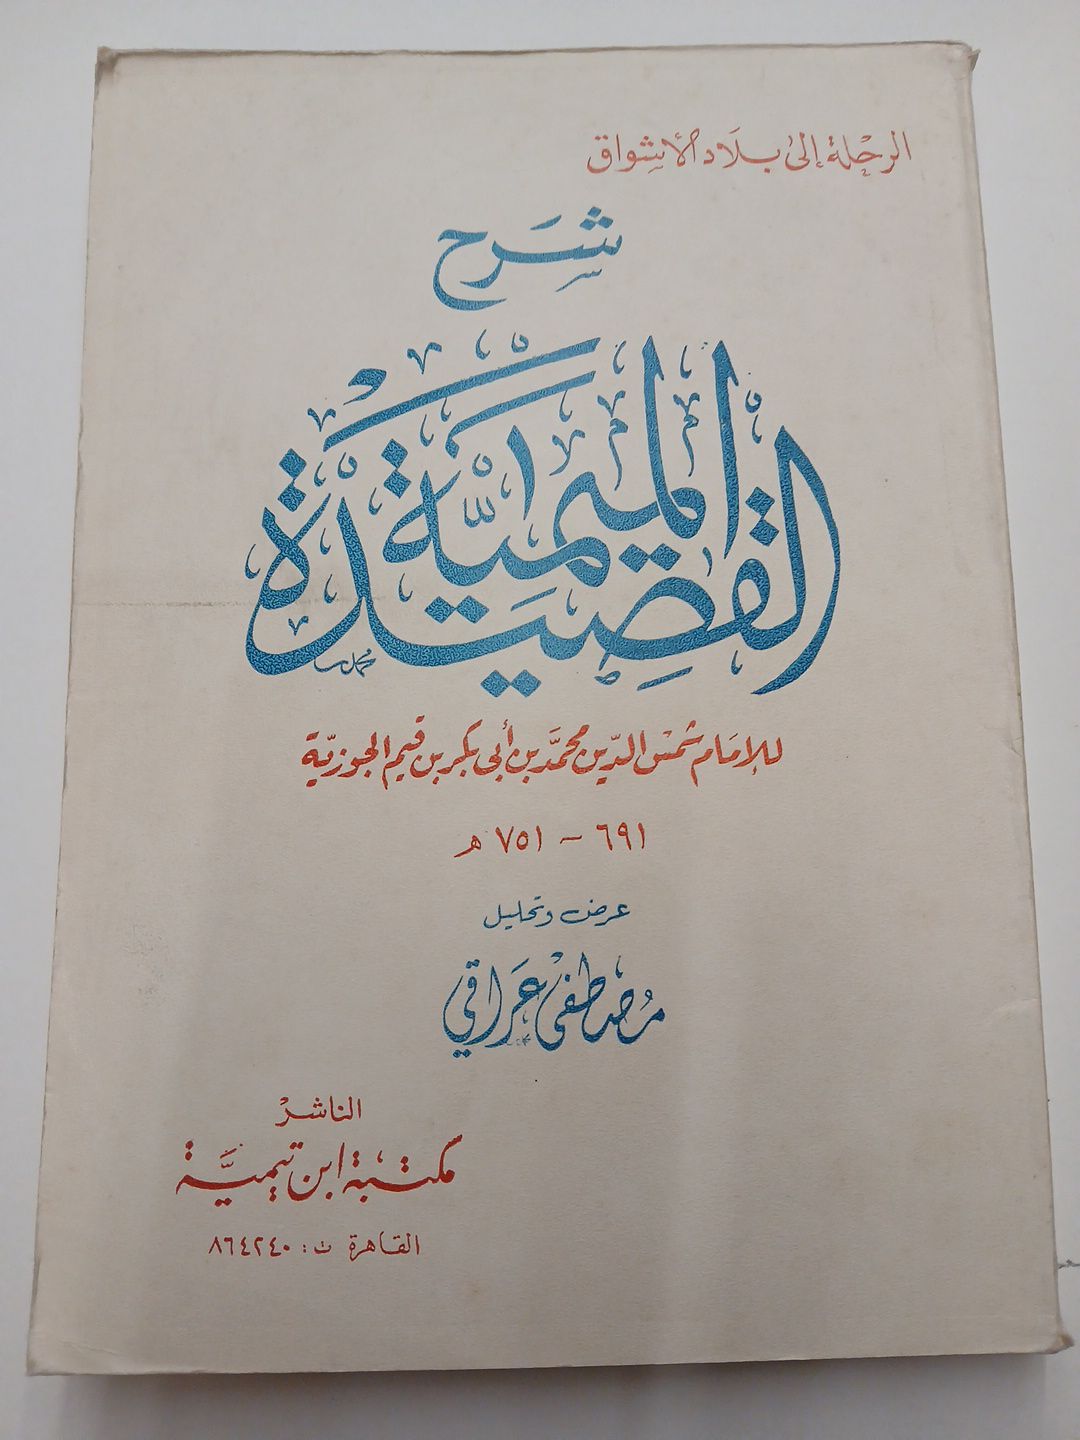 الرحلة إلى بلاد الأشواق
شرح
القصيدة الميمية
للإمام شمس الدين محمد بن أبي بكر بن قيم الجوزية
٦٩١ - ٧٥١ هـ
عرض وتحليل
مصطفى عراقي
الناشر
مكتبة ابن تيمية
القاهرة ت: ٨٦٤٢٤٠